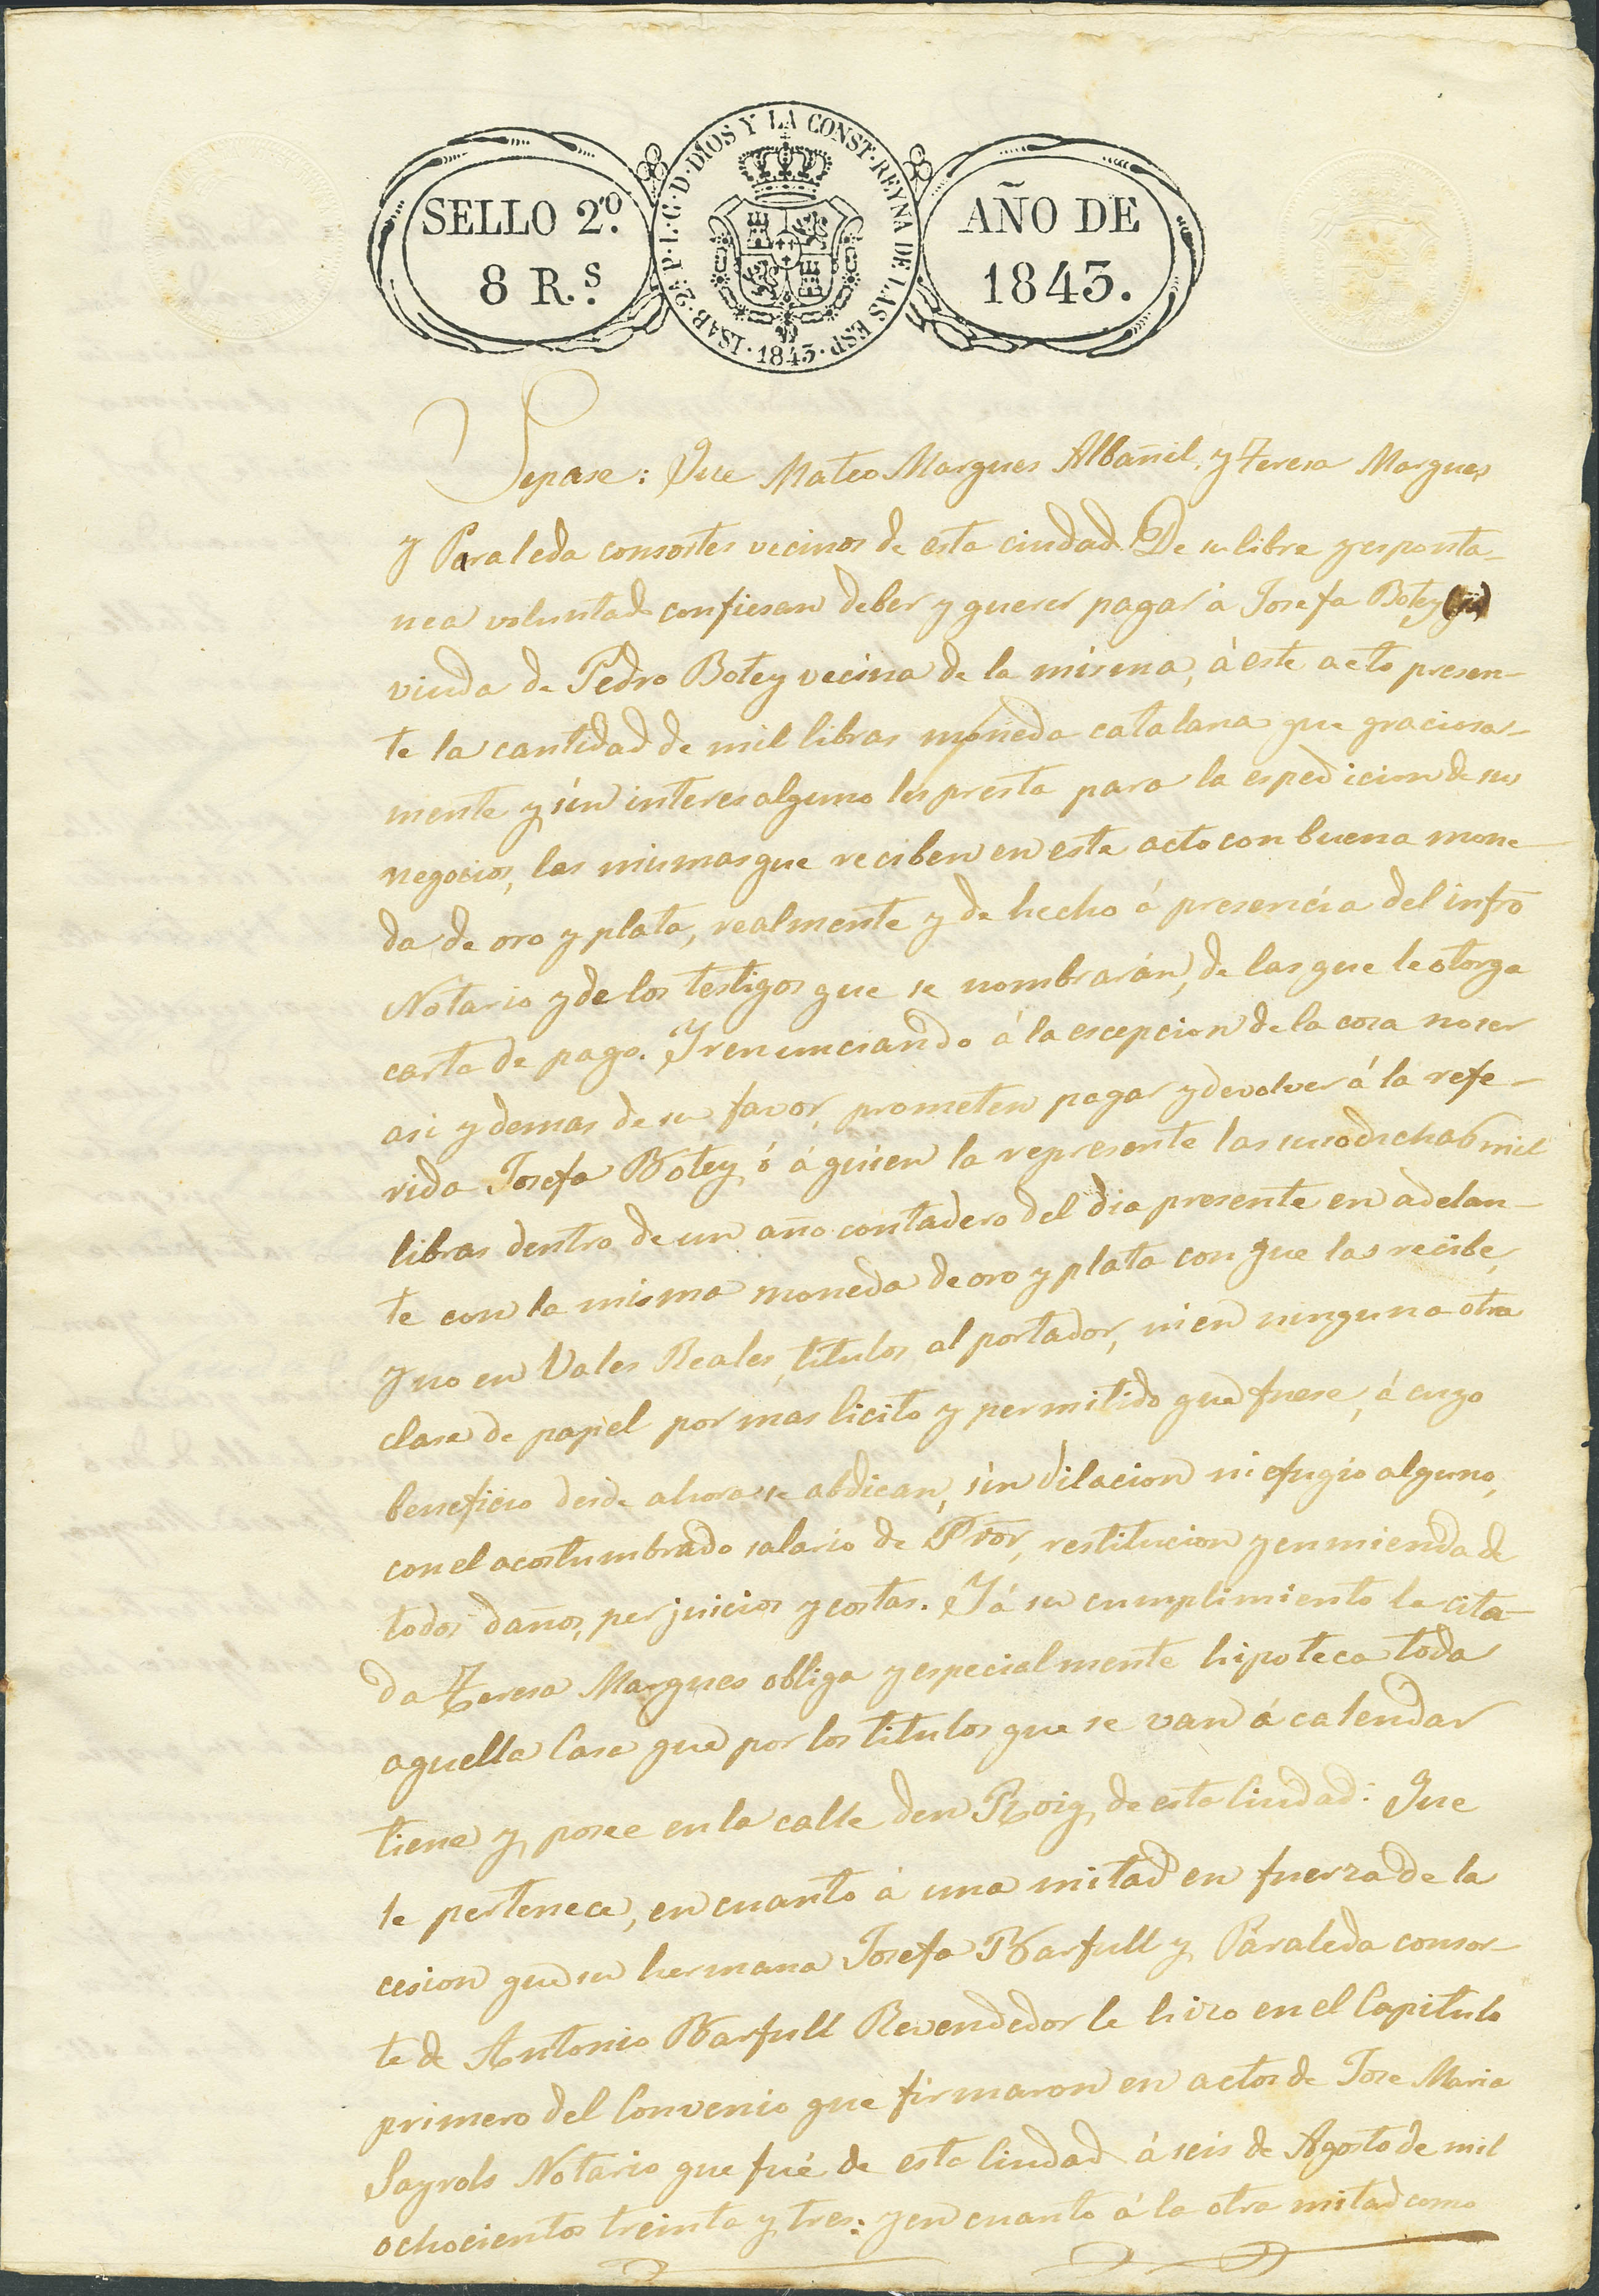 SELLO 2º.
8 R.s
ISAB. 2ª P. L. G. D. DIOS Y LA CONST. REYNA DE LAS ESP. 1843.
AÑO DE
1843.
Sepase: Que Mateo Marques Albañil, y Teresa Marques
y Paraleda consortes vecinos de esta ciudad. De su libre y esponta-
nea voluntad confiesan deber y querer pagar á Josefa Botey
viuda de Pedro Botey vecina de la misma, á este acto presen-
te la cantidad de mil libras moneda catalana que graciosa-
mente y sin interes alguno les presta para la espedicion de sus
negocios, las mismas que reciben en este acto con buena mone-
da de oro y plata, realmente y de hecho á presencia del infro
Notario y de los testigos que se nombrarán, de las que le otorga
carta de pago. Y renunciando á la escepcion de la cosa no ser
asi y demas de su favor, prometen pagar y devolver á la refe-
rida Josefa Botey ó á quien la represente las susodichas mil
libras dentro de un año contadero del dia presente en adelan-
te con la misma moneda de oro y plata con que las recibe,
y no en Vales Reales, titulos al portador, ni en ninguna otra
clase de papel por mas licito y permitido que fuese, á cuyo
beneficio desde ahora se abdican, sin dilacion ni efugio alguno,
con el acostumbrado salario de Pror, restitucion y enmienda de
todos daños, perjuicios y costas. Y á su cumplimiento la cita-
da Teresa Marques obliga y especialmente hipoteca toda
aquella Casa que por los titulos que se van á calendar
tiene y posee en la calle den Roig de esta Ciudad: Que
le pertenece, en cuanto á una mitad en fuerza de la
cesion que su hermana Josefa Barfull y Paraleda consor-
te de Antonio Barfull Revendedor le hizo en el Capitulo
primero del Convenio que firmaron en actos de Jose Maria
Sayrols Notario que fué de esta Ciudad á seis de Agosto de mil
ochocientos treinta y tres: y en cuanto á la otra mitad como